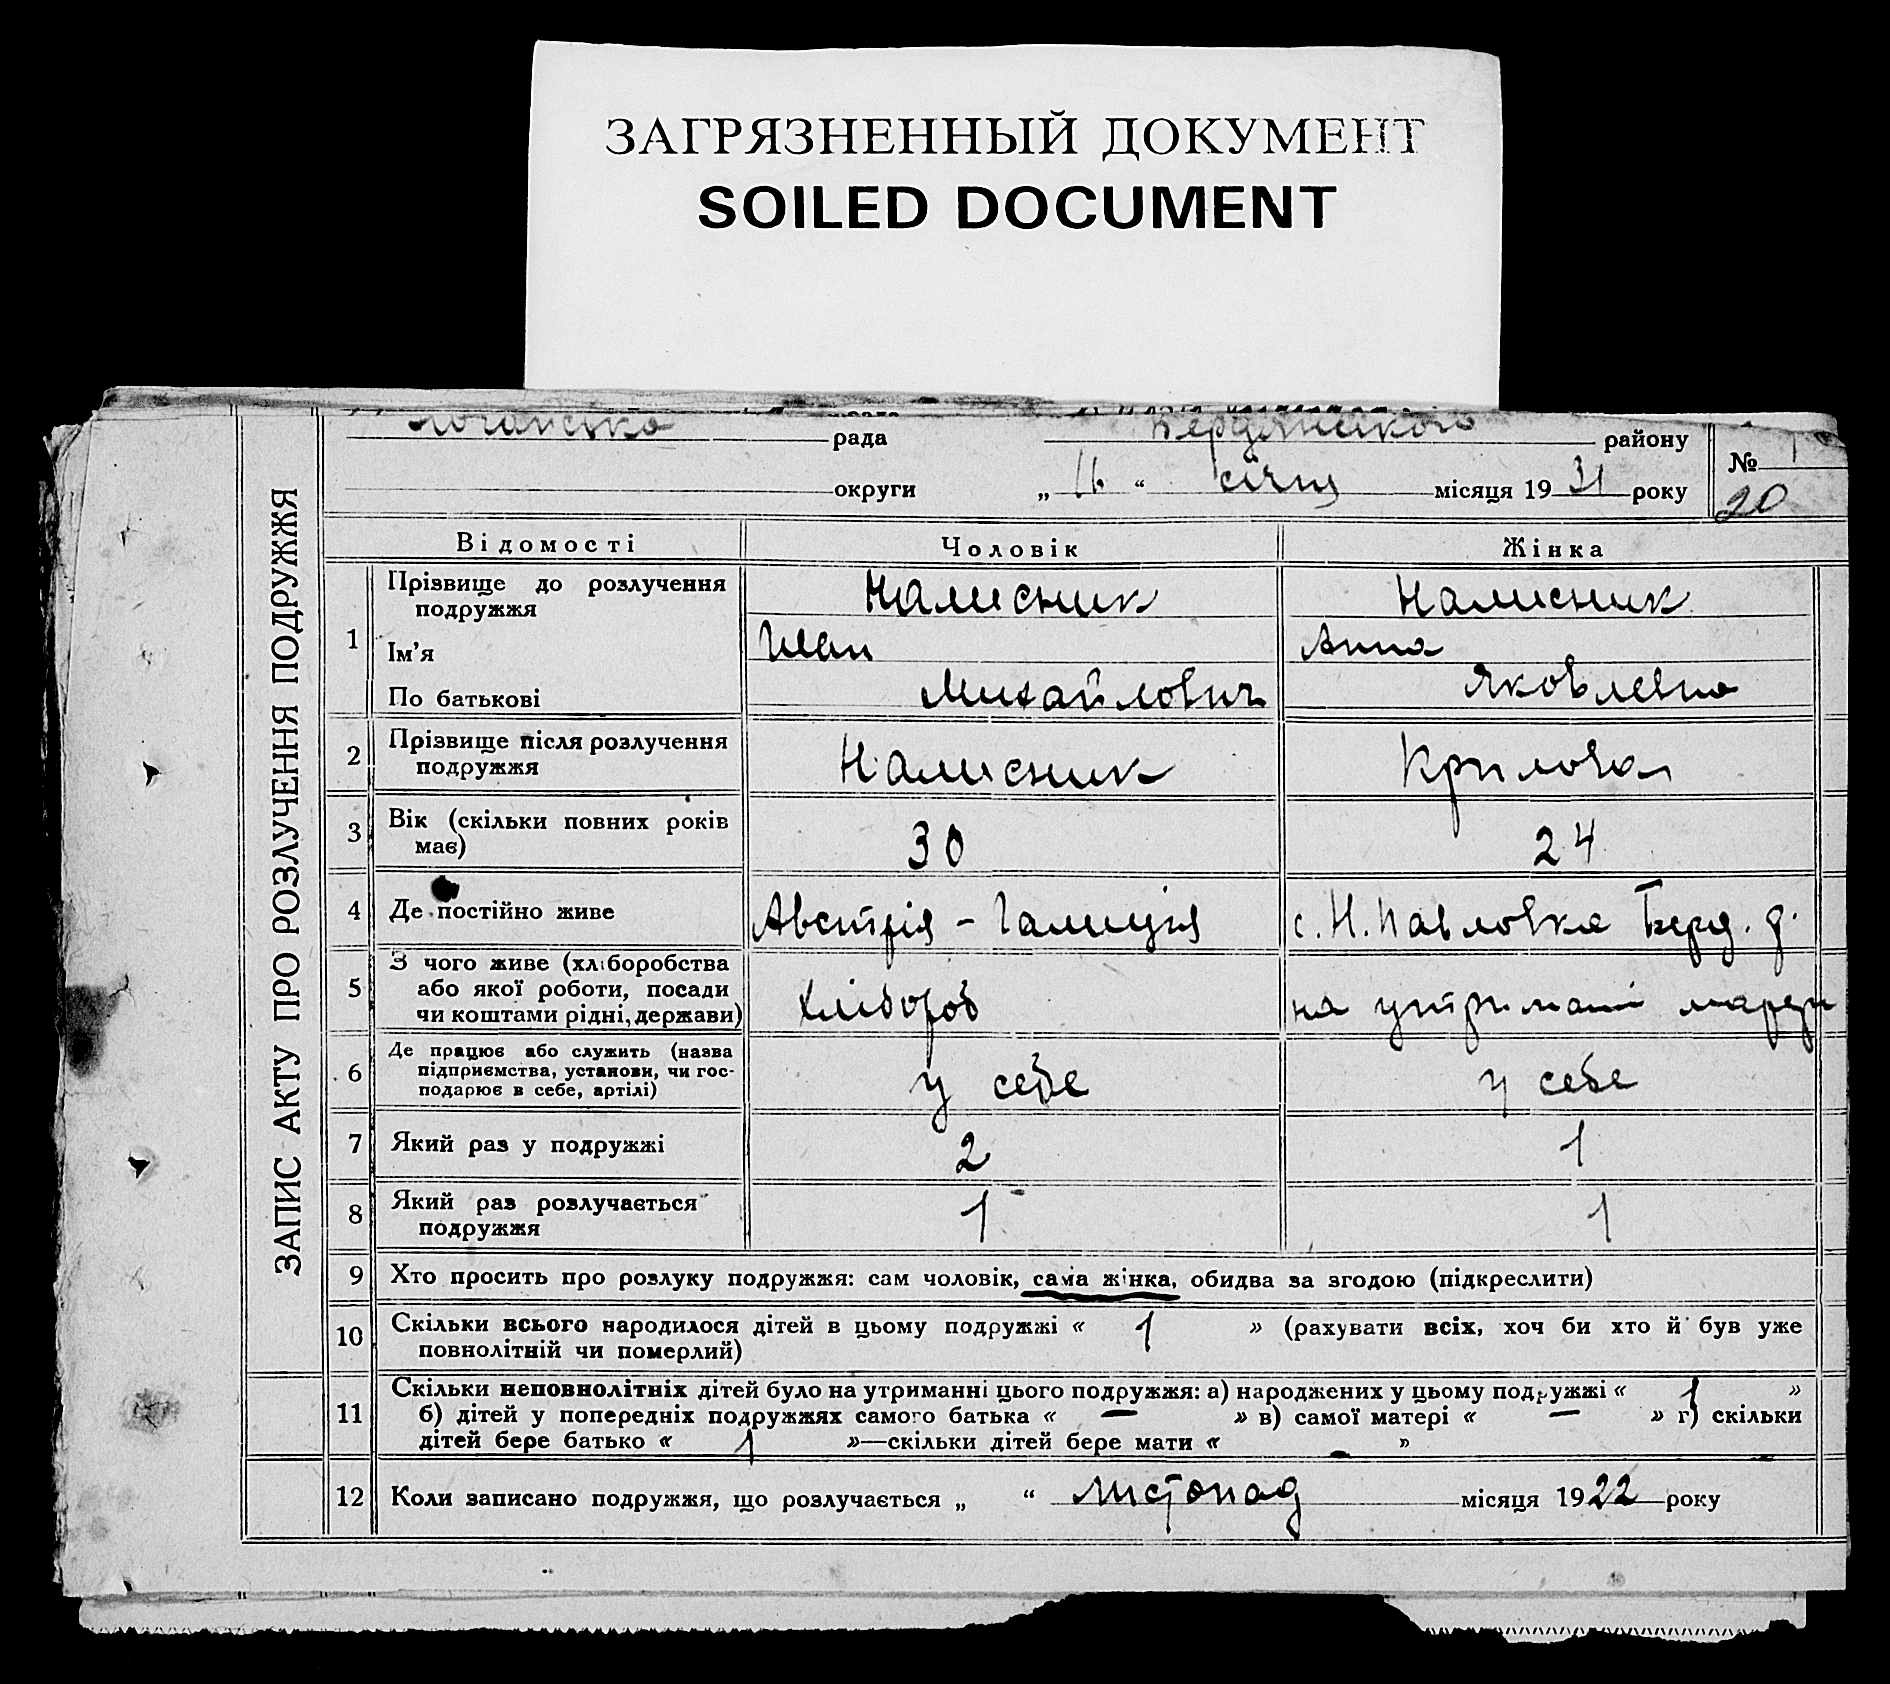 ЗАГРЯЗНЕННЫЙ ДОКУМЕНТ
SOILED DOCUMENT
рада Бердянського району
№ 1
округи „ 16 “ січня місяця 1931 року
20
ЗАПИС АКТУ ПРО РОЗЛУЧЕННЯ ПОДРУЖЖЯ
Відомості Чоловік Жінка
1 Прізвище до розлучення подружжя Налисник Налисник
Ім’я Иван Анна
По батькові Михайлович Яковлевна
2 Прізвище після розлучення подружжя Налисник Крилова
3 Вік (скільки повних років має) 30 24
4 Де постійно живе Австрія - Галиція с. Н. Павловка Берд. р.
5 З чого живе (хліборобства або якої роботи, посади чи коштами рідні, держави) Хлібороб на утримані матери
6 Де працює або служить (назва підприємства, установи, чи господарює в себе, артілі) у себе у себе
7 Який раз у подружжі 2 1
8 Який раз розлучається подружжя 1 1
9 Хто просить про розлуку подружжя: сам чоловік, сама жінка, обидва за згодою (підкреслити)
10 Скільки всього народилося дітей в цьому подружжі « 1 » (рахувати всіх, хоч би хто й був уже
повнолітній чи померлий)
11 Скільки неповнолітніх дітей було на утриманні цього подружжя: а) народжених у цьому подружжі « 1 »
б) дітей у попередніх подружжях самого батька « — » в) самої матері « — » г) скільки
дітей бере батько « 1 »—скільки дітей бере мати « - »
12 Коли записано подружжя, що розлучається „ “ листопад місяця 1922 року